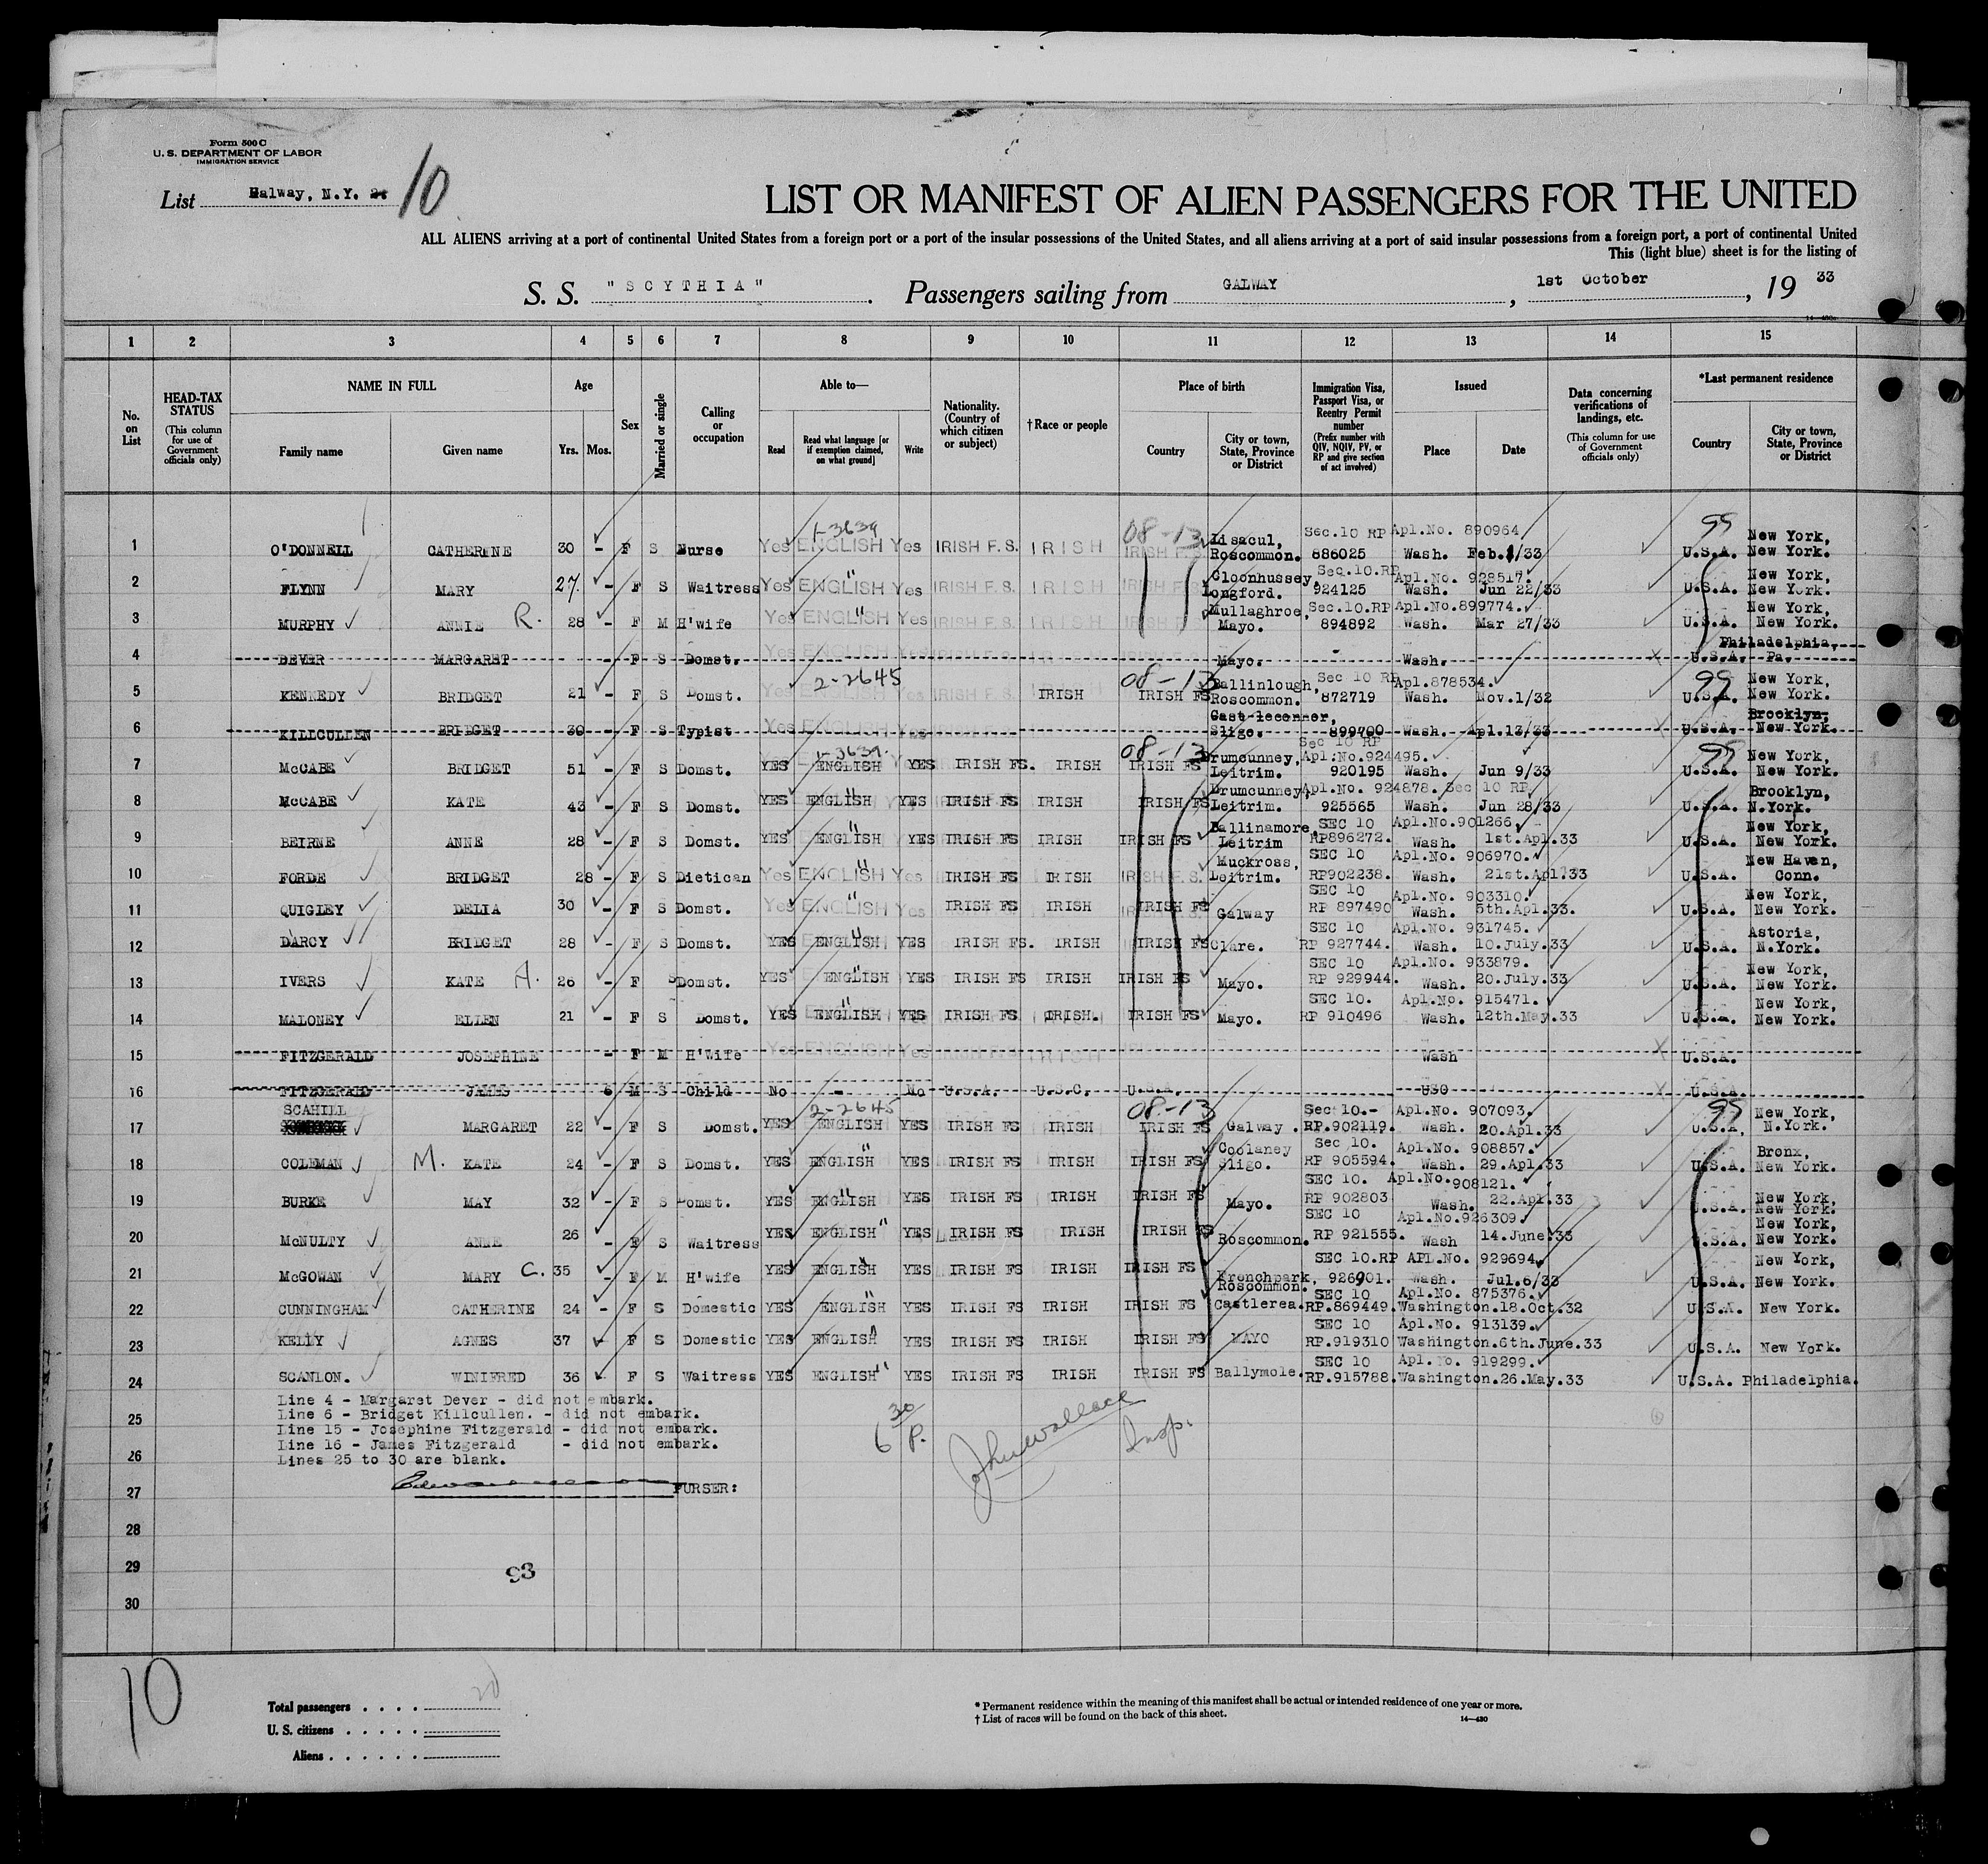 Form 500 C
U. S. DEPARTMENT OF LABOR
IMMIGRATION SERVICE
List Galway, N.Y. 10
LIST OR MANIFEST OF ALIEN PASSENGERS FOR THE UNITED
ALL ALIENS arriving at a port of continental United States from a foreign port or a port of the insular possessions of the United States, and all aliens arriving at a port of said insular possessions from a foreign port, a port of continental United
This (light blue) sheet is for the listing of
S. S. "SCYTHIA". Passengers sailing from GALWAY, 1st October, 19 33
14-430
1 2 3 4 5 6 7 8 9 10 11 12 13 14 15
No. on List
HEAD-TAX STATUS (This column for use of Government officials only)
NAME IN FULL Family name Given name
Age Yrs. Mos.
Sex
Married or single
Calling or occupation
Able to— Read Read what language [or if exemption claimed, on what ground] Write
Nationality. (Country of which citizen or subject)
†Race or people
Place of birth Country City or town, State, Province or District
Immigration Visa, Passport Visa, or Reentry Permit number (Prefix number with QIV, NQIV, PV, or RP and give section of act involved)
Issued Place Date
Data concerning verifications of landings, etc. (This column for use of Government officials only)
*Last permanent residence Country City or town, State, Province or District
1-3639 08-13 99
1 O'DONNELL CATHERINE 30 - F S Nurse Yes ENGLISH Yes IRISH F.S. IRISH IRISH F.S. Lisacul, Roscommon. Sec.10 RP Apl.No. 890964 886025 Wash. Feb.1/33 U.S.A. New York, New York.
2 FLYNN MARY 27. - F S Waitress Yes ENGLISH " Yes IRISH F.S. IRISH IRISH F.S. Cloonhussey, Longford. Sec.10.RP Apl.No. 928517. 924125 Wash. Jun 22/33 U.S.A. New York, New York.
3 MURPHY ANNIE R. 28 - F M H'wife Yes ENGLISH " Yes IRISH F.S. IRISH IRISH F.S. Mullaghroe, Mayo. Sec.10.RP Apl.No.899774. 894892 Wash. Mar 27/33 U.S.A. New York, New York.
4 DEVER MARGARET - F S Domst. Yes ENGLISH Yes IRISH F.S. IRISH IRISH F.S. Mayo. - Wash. X U.S.A. Philadelphia, Pa.
2-2645 08-13 99
5 KENNEDY BRIDGET 21 - F S Domst. Yes ENGLISH Yes IRISH F.S. IRISH IRISH FS Ballinlough, Roscommon. Sec 10 RP Apl.878534. 872719 Wash. Nov.1/32 U.S.A. New York, New York.
6 KILLCULLEN BRIDGET 30 - F S Typist Yes ENGLISH Yes Sligo. 899700 Wash. Apl.13/33 X U.S.A. Brooklyn, New York.
1-3639. 08-13 99
7 McCABE BRIDGET 51 - F S Domst. YES ENGLISH YES IRISH FS. IRISH IRISH FS Drumcunney, Leitrim. Sec 10 RP Apl.No.924495. 920195 Wash. Jun 9/33 U.S.A. New York, New York.
8 McCABE KATE 43 - F S Domst. YES ENGLISH " YES IRISH FS IRISH IRISH FS Drumcunney, Leitrim. Apl.No. 924878. Sec 10 RP. 925565 Wash. Jun 28/33 U.S.A. Brooklyn, N.York.
9 BEIRNE ANNE 28 - F S Domst. YES ENGLISH " YES IRISH FS IRISH IRISH FS Ballinamore, Leitrim SEC 10 Apl.No.901266. RP896272. Wash. 1st.Apl.33 U.S.A. New York, New York.
10 FORDE BRIDGET 28 - F S Dietican Yes ENGLISH " Yes IRISH FS IRISH IRISH F.S. Muckross, Leitrim. SEC 10 Apl.No. 906970. RP902238. Wash. 21st.Apl.33 U.S.A. New Haven, Conn.
11 QUIGLEY DELIA 30 - F S Domst. Yes ENGLISH " Yes IRISH FS IRISH IRISH FS Galway SEC 10 Apl.No. 903310. RP 897490 Wash. 5th.Apl.33. U.S.A. New York, New York.
12 DARCY BRIDGET 28 - F S Domst. YES ENGLISH " YES IRISH FS. IRISH IRISH FS Clare. SEC 10 Apl.No. 931745. RP 927744. Wash. 10.July.33 U.S.A. Astoria, N.York.
13 IVERS KATE A. 26 - F S Domst. YES ENGLISH " YES IRISH FS IRISH IRISH FS Mayo. SEC 10 Apl.No. 933879. RP 929944. Wash. 20.July.33 U.S.A. New York, New York.
14 MALONEY ELLEN 21 - F S Domst. YES ENGLISH " YES IRISH FS IRISH. IRISH FS Mayo. SEC 10. Apl.No. 915471. RP 910496 Wash. 12th.May.33 U.S.A. New York, New York.
15 FITZGERALD JOSEPHINE - F M H'Wife Yes ENGLISH Yes IRISH Wash X U.S.A.
16 FITZGERALD JAMES 6 M S Child No - No U.S.A. U.S.C. U.S.A. USC X U.S.A.
2-2645 08-13 99
17 SCAHILL MARGARET 22 - F S Domst. YES ENGLISH YES IRISH FS IRISH IRISH FS Galway. Sec 10.- Apl.No. 907093. RP.902119. Wash. 20.Apl.33 U.S.A. New York, N.York.
18 COLEMAN M. KATE 24 - F S Domst. YES ENGLISH " YES IRISH FS IRISH IRISH FS Coolaney Sligo. Sec 10. Apl.No. 908857. RP 905594. Wash. 29.Apl.33 U.S.A. Bronx, New York.
19 BURKE MAY 32 - F S Domst. YES ENGLISH " YES IRISH FS IRISH IRISH FS Mayo. SEC 10. Apl.No.908121. RP 902803 Wash. 22.Apl.33 U.S.A. New York, New York.
20 McNULTY ANNE 26 - F S Waitress YES ENGLISH " YES IRISH FS IRISH IRISH FS Roscommon. SEC 10 Apl.No.926309. RP 921555. Wash 14.June.33 U.S.A. New York, New York.
21 McGOWAN MARY C. 35 - F M H'wife YES ENGLISH " YES IRISH FS IRISH IRISH FS Frenchpark, Roscommon. SEC 10.RP APl.No. 929694. 926901. Wash. Jul.6/33 U.S.A. New York, New York.
22 CUNNINGHAM CATHERINE 24 - F S Domestic YES ENGLISH " YES IRISH FS IRISH IRISH FS Castlerea. SEC 10 Apl.No. 875376. RP.869449. Washington.18.Oct.32 U.S.A. New York.
23 KELLY AGNES 37 - F S Domestic YES ENGLISH " YES IRISH FS IRISH IRISH FS MAYO SEC 10 Apl.No. 913139. RP.919310 Washington.6th.June.33 U.S.A. New York.
24 SCANLON. WINIFRED 36 - F S Waitress YES ENGLISH " YES IRISH FS IRISH IRISH FS Ballymole. SEC 10 Apl.No. 919299. RP.915788. Washington.26.May.33 U.S.A. Philadelphia.
Line 4 - Margaret Dever - did not embark.
25 Line 6 - Bridget Killcullen. - did not embark.
Line 15 - Josephine Fitzgerald - did not embark.
Line 16 - James Fitzgerald - did not embark.
26 Lines 25 to 30 are blank.
6 30 P. John Wallace Insp.
27 PURSER:
28
29 93
30
10
Total passengers . . . . 20
U. S. citizens . . . . .
Aliens . . . . . .
* Permanent residence within the meaning of this manifest shall be actual or intended residence of one year or more.
† List of races will be found on the back of this sheet. 14-430